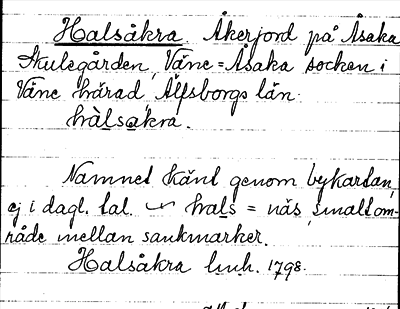 Halsåkra. Åkerjord på Åsaka
Skulegården, Väne=Åsaka socken i
Väne härad Älfsborgs län.
hàlsakra.
Namnet känt genom bykartan,
ej i dagl. tal. ~ hals = näs, smalt om-
råde mellan sankmarker.
Halsåkra lmh. 1798.